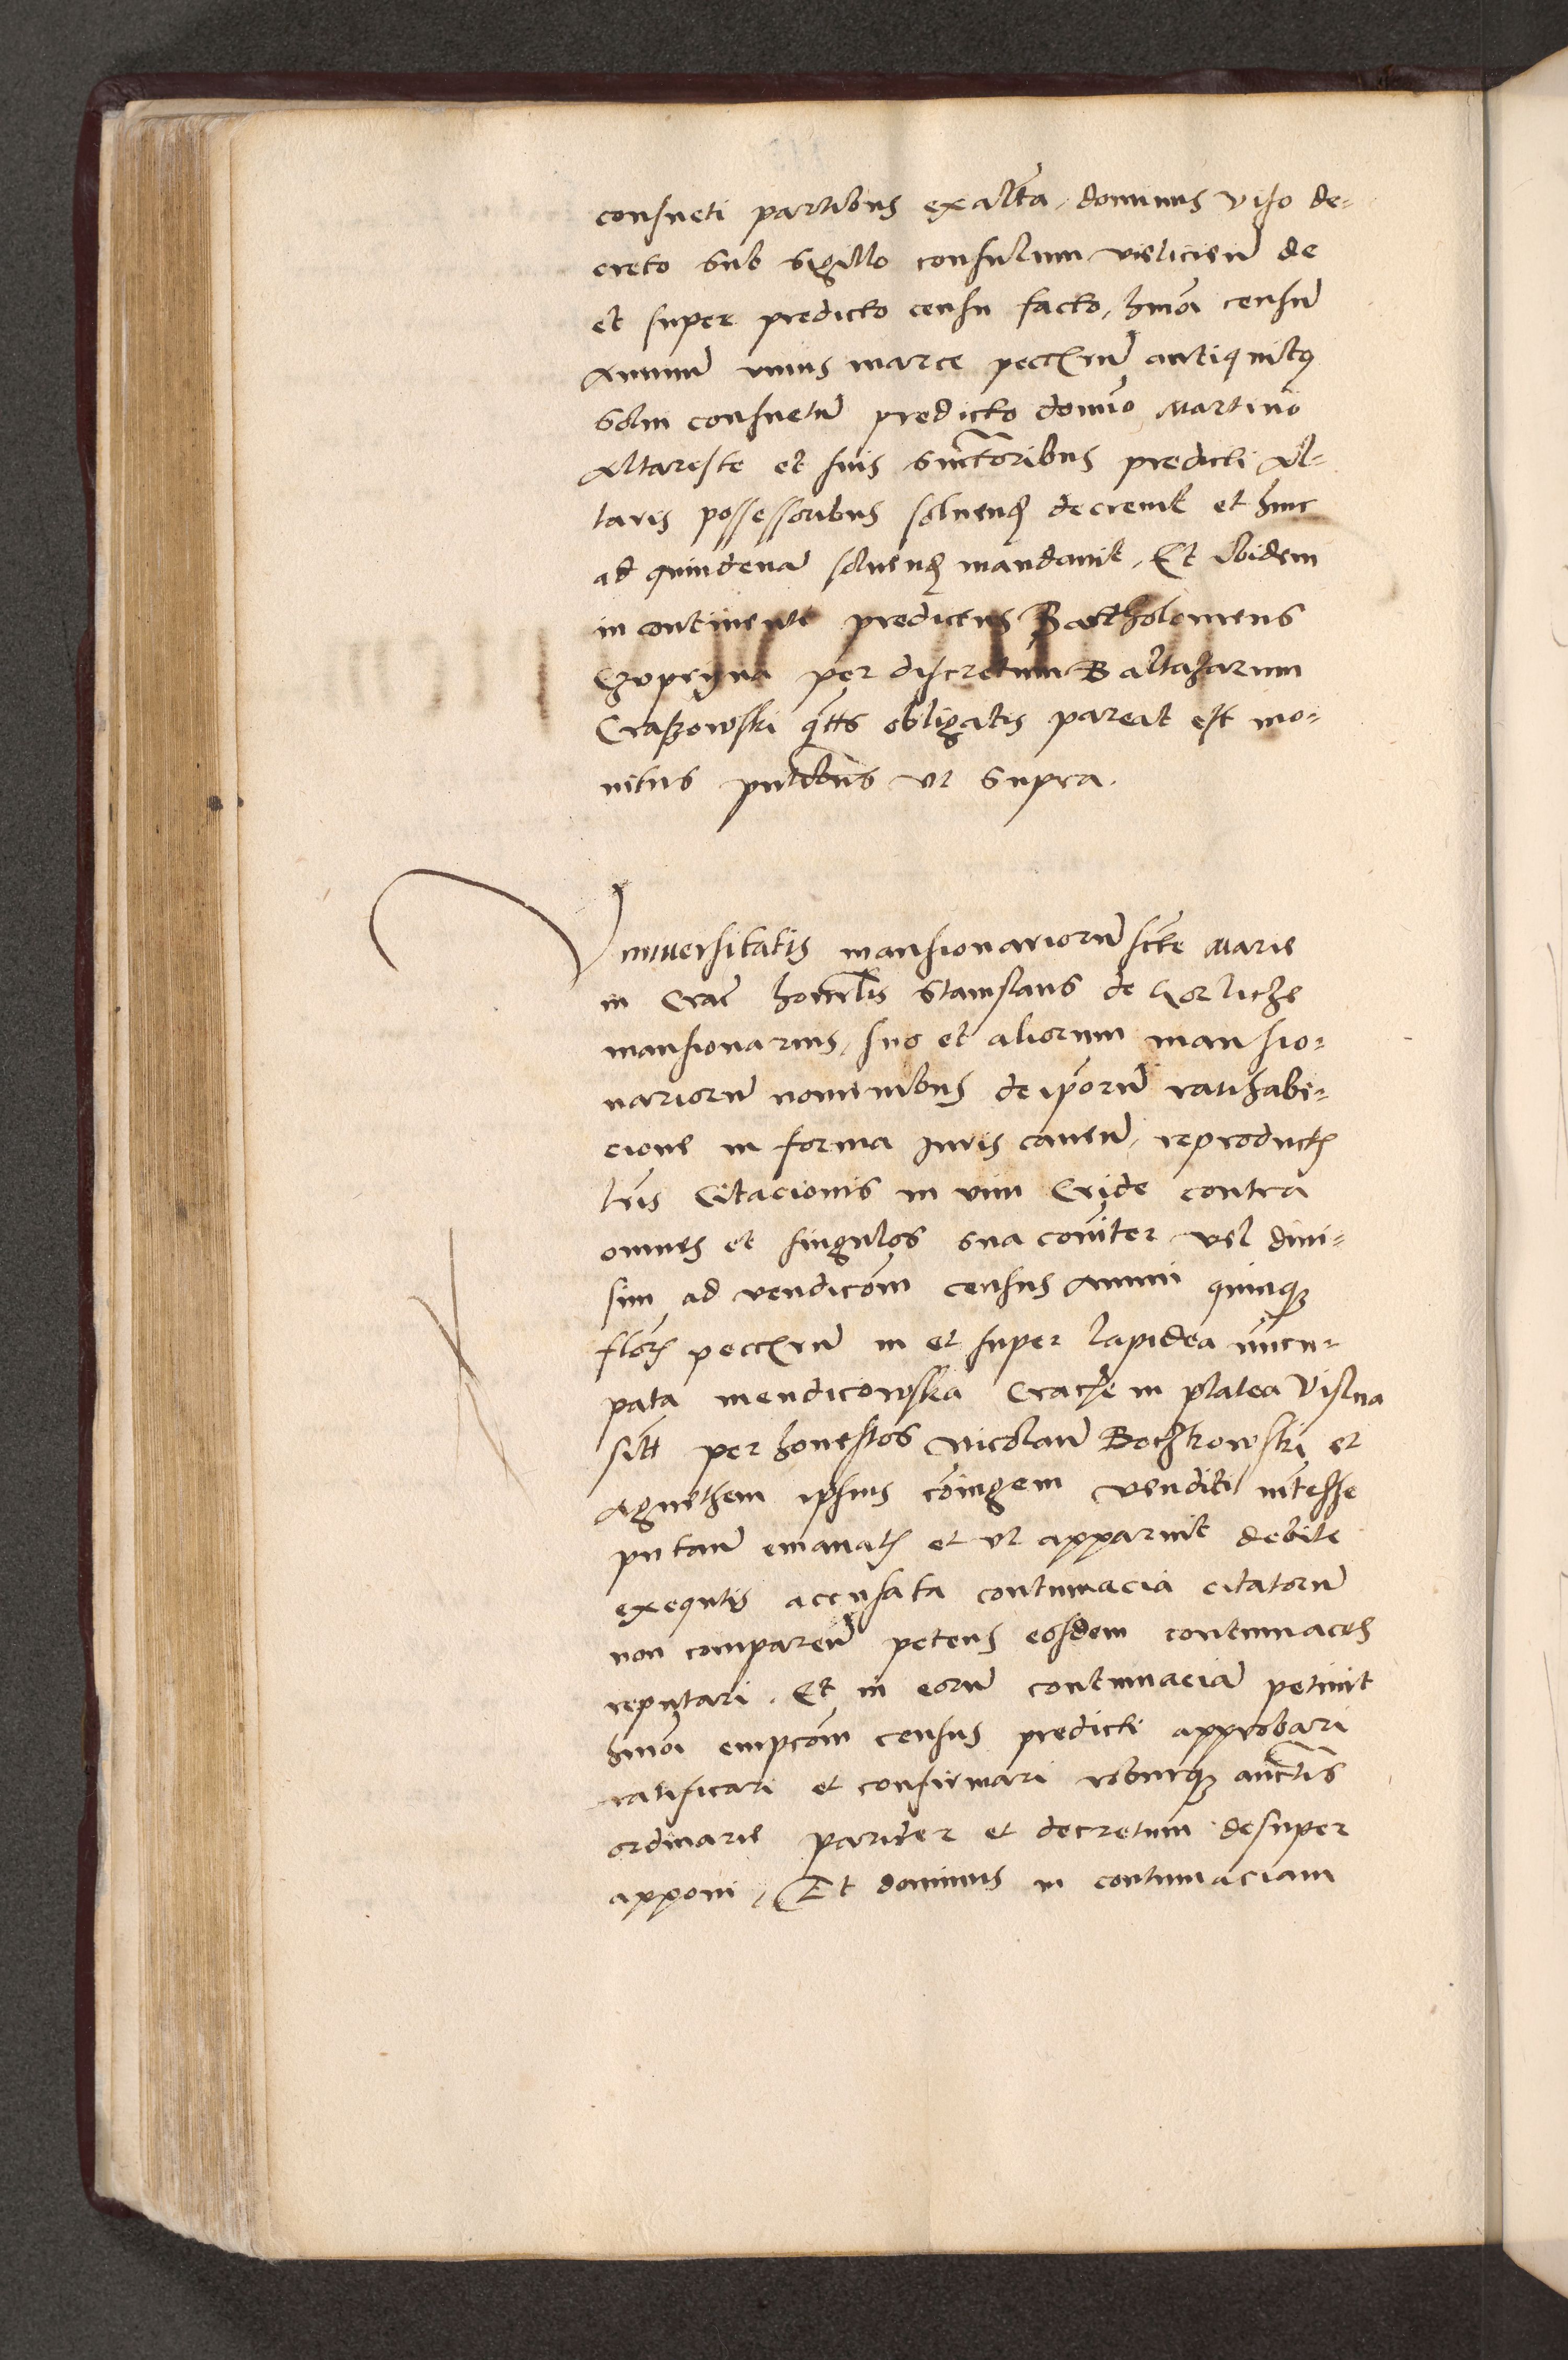 consueti partibus ex altera, dominus viso de-
creto sub sigillo consulum vielicien̄ de
et super predicto censu facto, hm̄oi censū
Annuū unius marce peccūrū antiquitus
solui consuetū predicto domīo Martino
Altareste et suis successoribus predicti Al-
taris possessoribus soluend decreuit et hinc
ad quindenā soluend mandauit, Et ibidem
in continenti predictus Bartholomeus
Czopryna per discretum Baltazarum
Craszowski obligatis pareat est mo-
nitus pn̄tibus vt supra.
Vniuersitatis mansionariorū sctē Marie
in Crac̄ honorabilis Stanislaus de Gorlicze
mansionarius, suo et aliorum mansio-
nariorū nominibus de ip̄orū ratihabi-
cione in forma Iuris cauen̄, reproductis
lr̄is Citacionis in vim Cride contra
omnes et singulos sua com̄iter vel diui-
sim ad vendicōem census Annui quinque
flor̄ peccūrū in et super lapidea nūcu-
pata mendicowska Crac̄ie in platea Vislna
sitt per honestos Nicolaū Boczkowski et
Agnethem ipsius cōiugem venditi intesse
putan̄ emanatis et vt apparuit debite
exequtis accusata contumacia citatorū
non comparen̄ petens eosdem contumaces
reputari. Et in eorū contumaciā petiuit
hm̄oi empcōem census predicti approbari
ratificari et confirmari roburque auctis
ordinarie pariter et decretum desuper
apponi, Et dominus in contumaciam